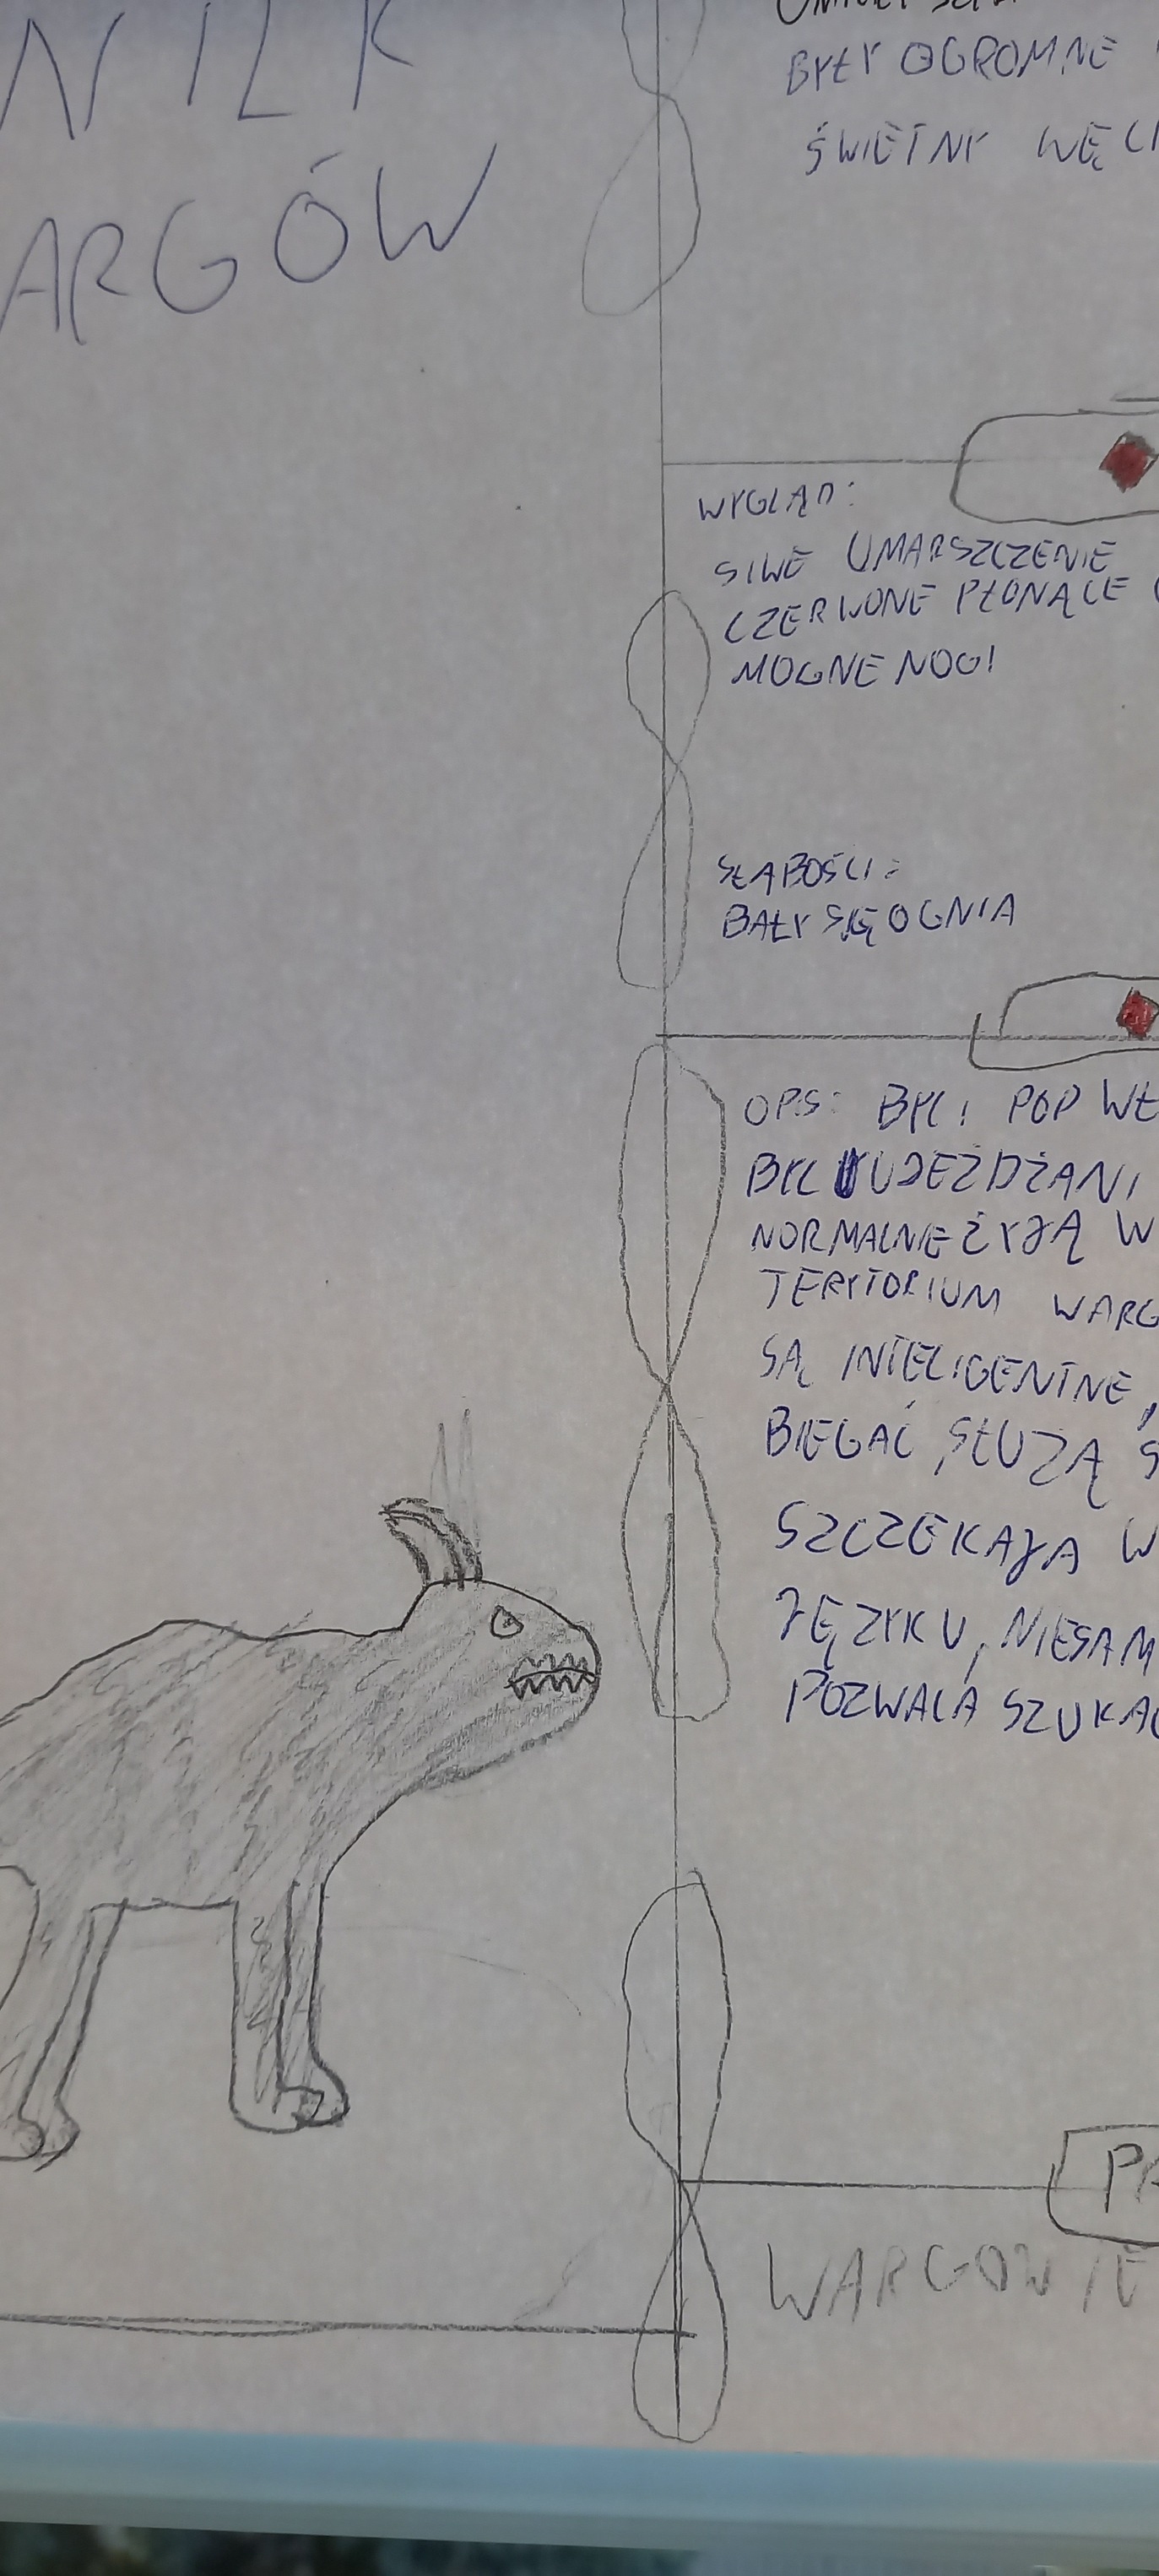 NILK
ARGÓW
BYŁY OGROMNE
ŚWIETNY WĘ
WYGLĄD:
SIWE UMARSZCZENIE
CZERWONE PŁONĄCE
MOGNE NOGI
SŁABOŚCI:
BAŁY SIĘ OGNIA
OPIS: BYLI POD WŁ
BYLI UJEŻDŻANI
NORMALNIE ŻYJĄ W
TERYTORIUM WARG
SĄ INTELIGENTNE,
BIEGAĆ, SŁUŻĄ S
SZCZEKAJA W
JĘZYKU, NIESAM
POZWALA SZUKAĆ
PA
WARGOWIE